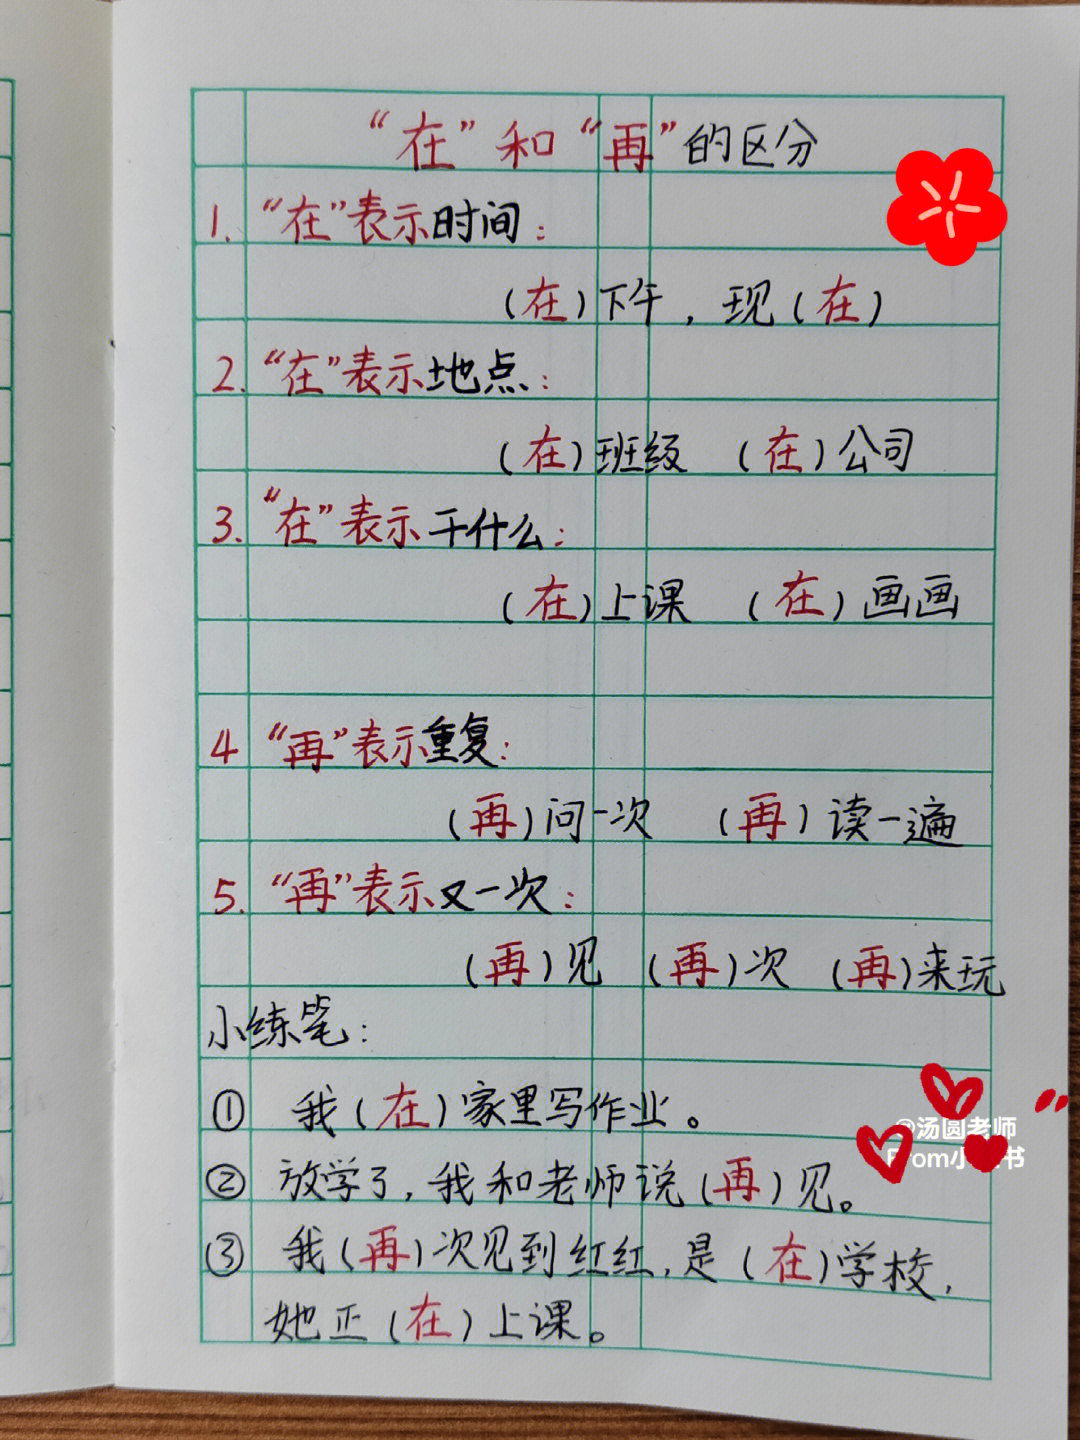 “在”和“再”的区分
1. “在”表示时间:
(在)下午, 现(在)
2. “在”表示地点:
(在)班级 (在)公司
3. “在”表示干什么:
(在)上课 (在)画画
4 “再”表示重复:
(再)问一次 (再)读一遍
5. “再”表示又一次:
(再)见 (再)次 (再)来玩
小练笔:
① 我(在)家里写作业。
② 放学了,我和老师说(再)见。
③ 我(再)次见到红红,是(在)学校,
她正(在)上课。
@汤圆老师